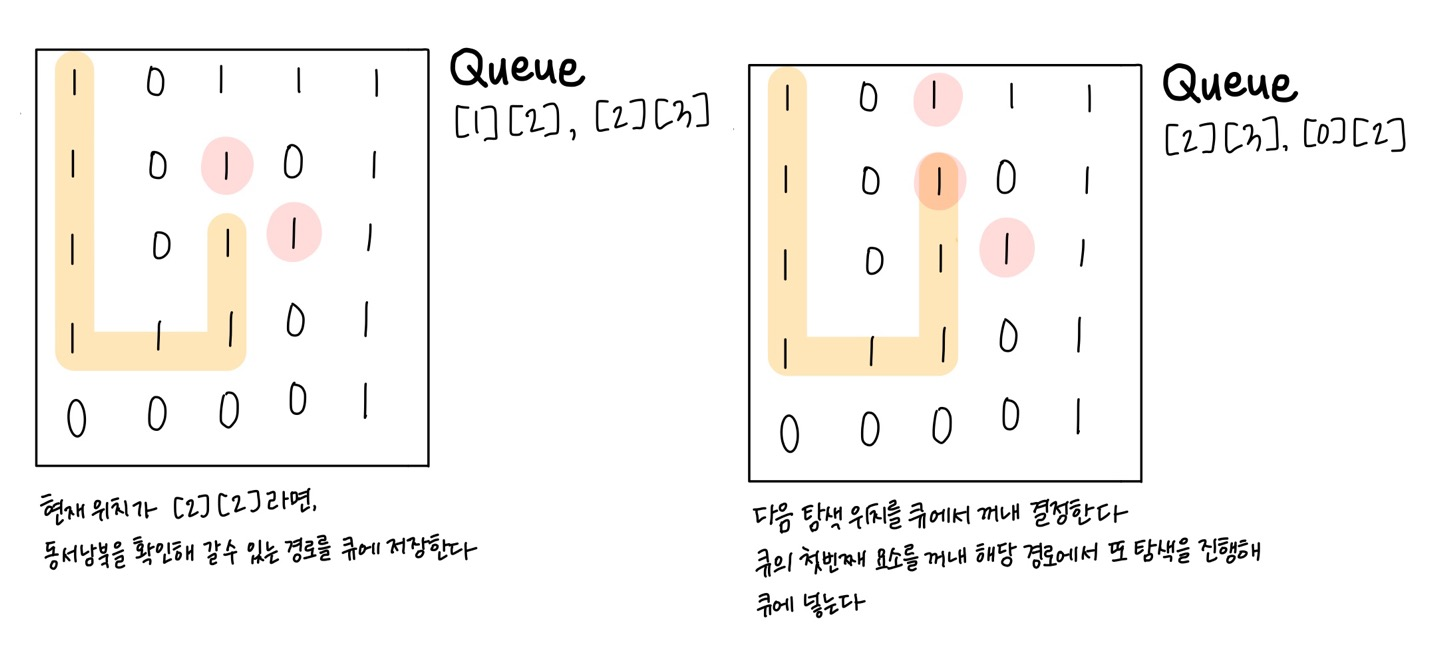 1 0 1 1 1
1 0 1 0 1
1 0 1 1 1
1 1 1 0 1
0 0 0 0 1
Queue
[1][2], [2][3]
현재 위치가 [2][2]라면,
동서남북을 확인해 갈수 있는 경로를 큐에 저장한다
1 0 1 1 1
1 0 1 0 1
1 0 1 1 1
1 1 1 0 1
0 0 0 0 1
Queue
[2][3], [0][2]
다음 탐색 위치를 큐에서 꺼내 결정한다
큐의 첫번째 요소를 꺼내 해당 경로에서 또 탐색을 진행해
큐에 넣는다